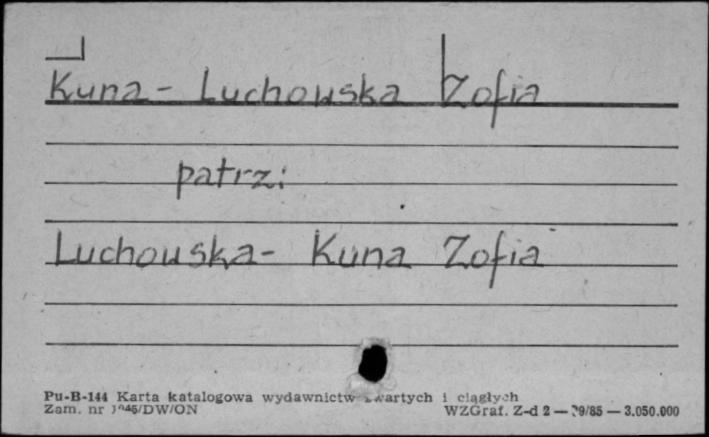 Kuna- Luchowska Zofia
patrz:
Luchowska- Kuna Zofia
Pu-B-144 Karta katalogowa wydawnictw zwartych i ciągłych
Zam. nr WZGraf. Z-d 2 — 3.050.000